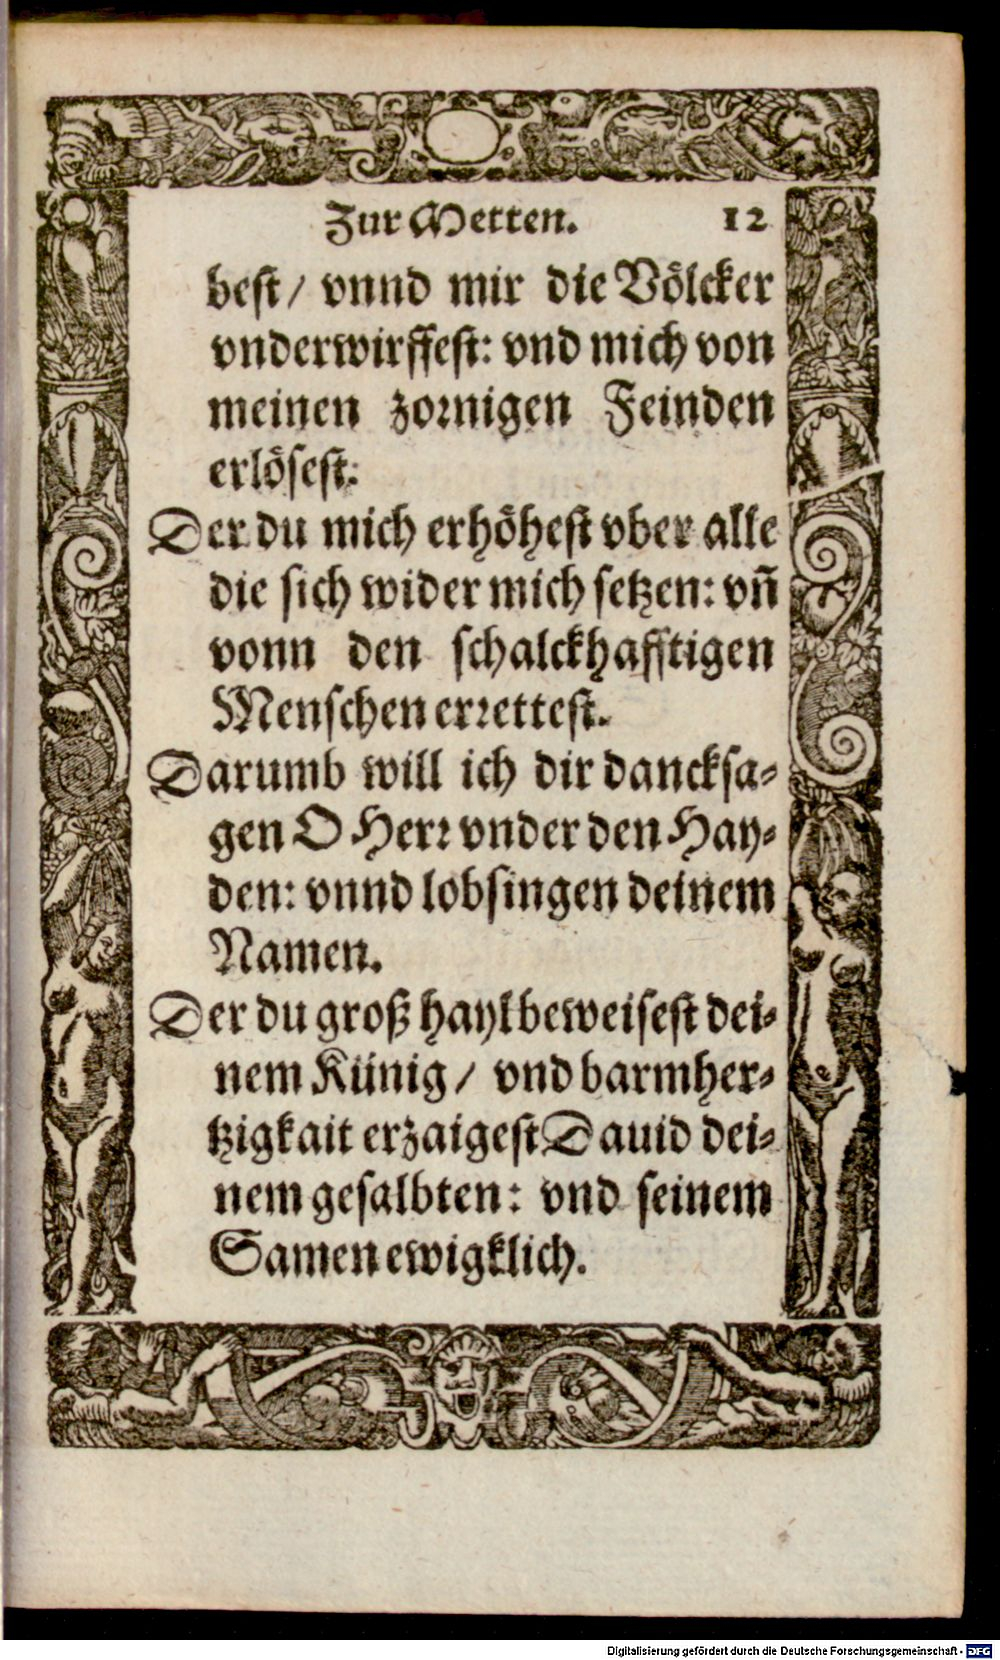 Zur Metten. 12
best / vnnd mir die Völcker
vnderwirffest: vnd mich von
meinen zornigen Feinden
erlösest:
Der du mich erhöhest vber alle
die sich wider mich setzen: vñ
vonn den schalckhafftigen
Menschen errettest.
Darumb will ich dir dancksa-
gen O Herr vnder den Hay-
den: vnnd lobsingen deinem
Namen.
Der du groß hayl beweisest dei-
nem Künig / vnd barmher-
tzigkait erzaigest Dauid dei-
nem gesalbten: vnd seinem
Samen ewigklich.
Digitalisierung gefördert durch die Deutsche Forschungsgemeinschaft - DFG